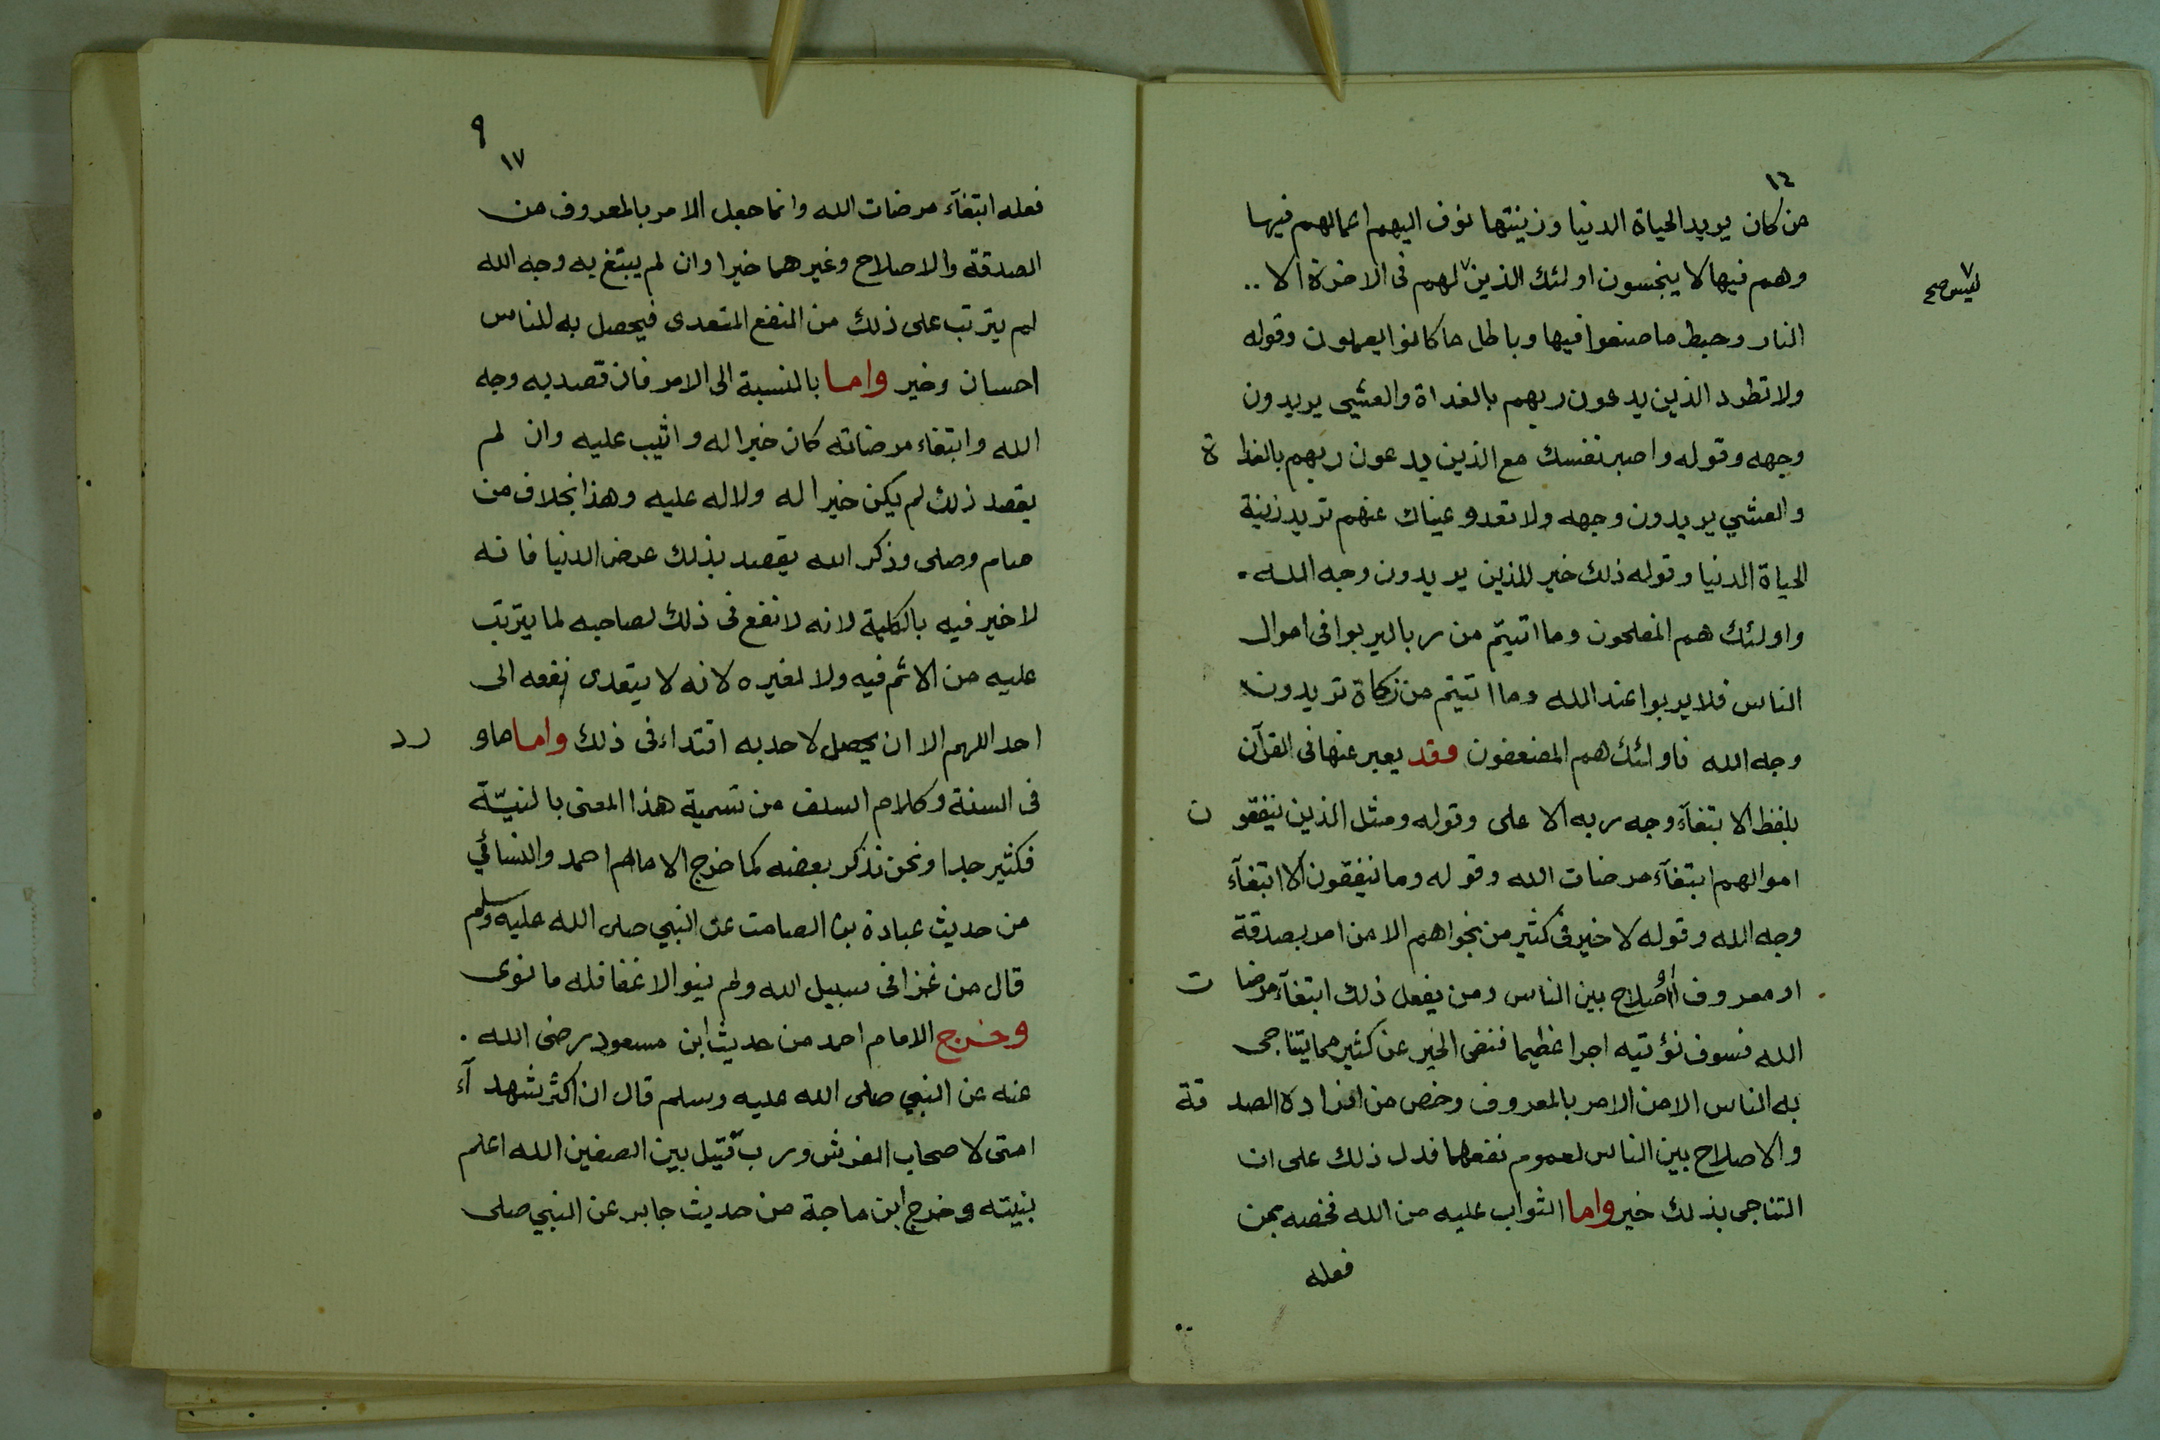 ١٤
من كان يريد الحياة الدنيا وزينتها نوف اليهم اعمالهم فيها
وهم فيها لا يبخسون اولئك الذين لهم فى الاخرة الا ..
ليس صح
النار وحبط ما صنعوا فيها وباطل ما كانوا يعملون وقوله
ولا تطرد الذين يدعون ربهم بالغداة والعشي يريدون
وجهه وقوله واصبر نفسك مع الذين يدعون ربهم بالغداة
والعشي يريدون وجهه ولا تعدو عيناك عنهم تريد زينة
الحياة الدنيا وقوله ذلك خير للذين يريدون وجه الله .
واولئك هم المفلحون وما اتيتم من ربا ليربوا فى اموال
الناس فلا يربوا عند الله وما اتيتم من زكاة تريدون
وجه الله فاولئك هم المضعفون وقد يعبر عنها فى القرآن
بلفظ الابتغآء وجه ربه الاعلى وقوله ومثل الذين ينفقون
اموالهم ابتغآء مرضات الله وقوله وما تنفقون الا ابتغآء
وجه الله وقوله لا خير فى كثير من نجواهم الا من امر بصدقة
او معروف او اصلاح بين الناس ومن يفعل ذلك ابتغآء مرضات
الله فسوف نؤتيه اجرا عظيما فنفى الخير عن كثير مما يتناجى
به الناس الا من الامر بالمعروف وخص من افراده الصدقة
والاصلاح بين الناس لعموم نفعهما فدل ذلك على ان
التناجى بذلك خير واما الثواب عليه من الله فخصه بمن
فعله
٩
١٧
فعله ابتغآء مرضات الله وانما جعل الامر بالمعروف من
الصدقة والاصلاح وغيرهما خيرا وان لم يبتغ به وجه الله
لم يترتب على ذلك من النفع المتعدى فيحصل به للناس
احسان وخير واما بالنسبة الى الامر فان قصد به وجه
الله وابتغاء مرضاته كان خيرا له واثيب عليه وان لم
يقصد ذلك لم يكن خيرا له ولا له عليه وهذا بخلاف من
صام وصلى وذكر الله يقصد بذلك عرض الدنيا فانه
لا خير فيه بالكلية لانه لا نفع فى ذلك لصاحبه لما يترتب
عليه من الاثم فيه ولا لغيره لانه لا يتعدى نفعه الى
احد اللهم الا ان يحصل لاحد به اقتداء فى ذلك واما ما ورد
فى السنة وكلام السلف من تسمية هذا المعنى بالنيّة
فكثير جدا ونحن نذكر بعضه كما خرج الامام احمد والنسائي
من حديث عبادة بن الصامت عن النبي صلى الله عليه وسلم
قال من غزا فى سبيل الله ولم ينو الا غقا فله ما نوى
وخرج الامام احمد من حديث ابن مسعود رضى الله .
عنه عن النبي صلى الله عليه وسلم قال ان اكثر شهدآء
امتى لاصحاب الفرش ورب قتيل بين الصفين الله اعلم
بنيته وخرج ابن ماجة من حديث جابر عن النبي صلى